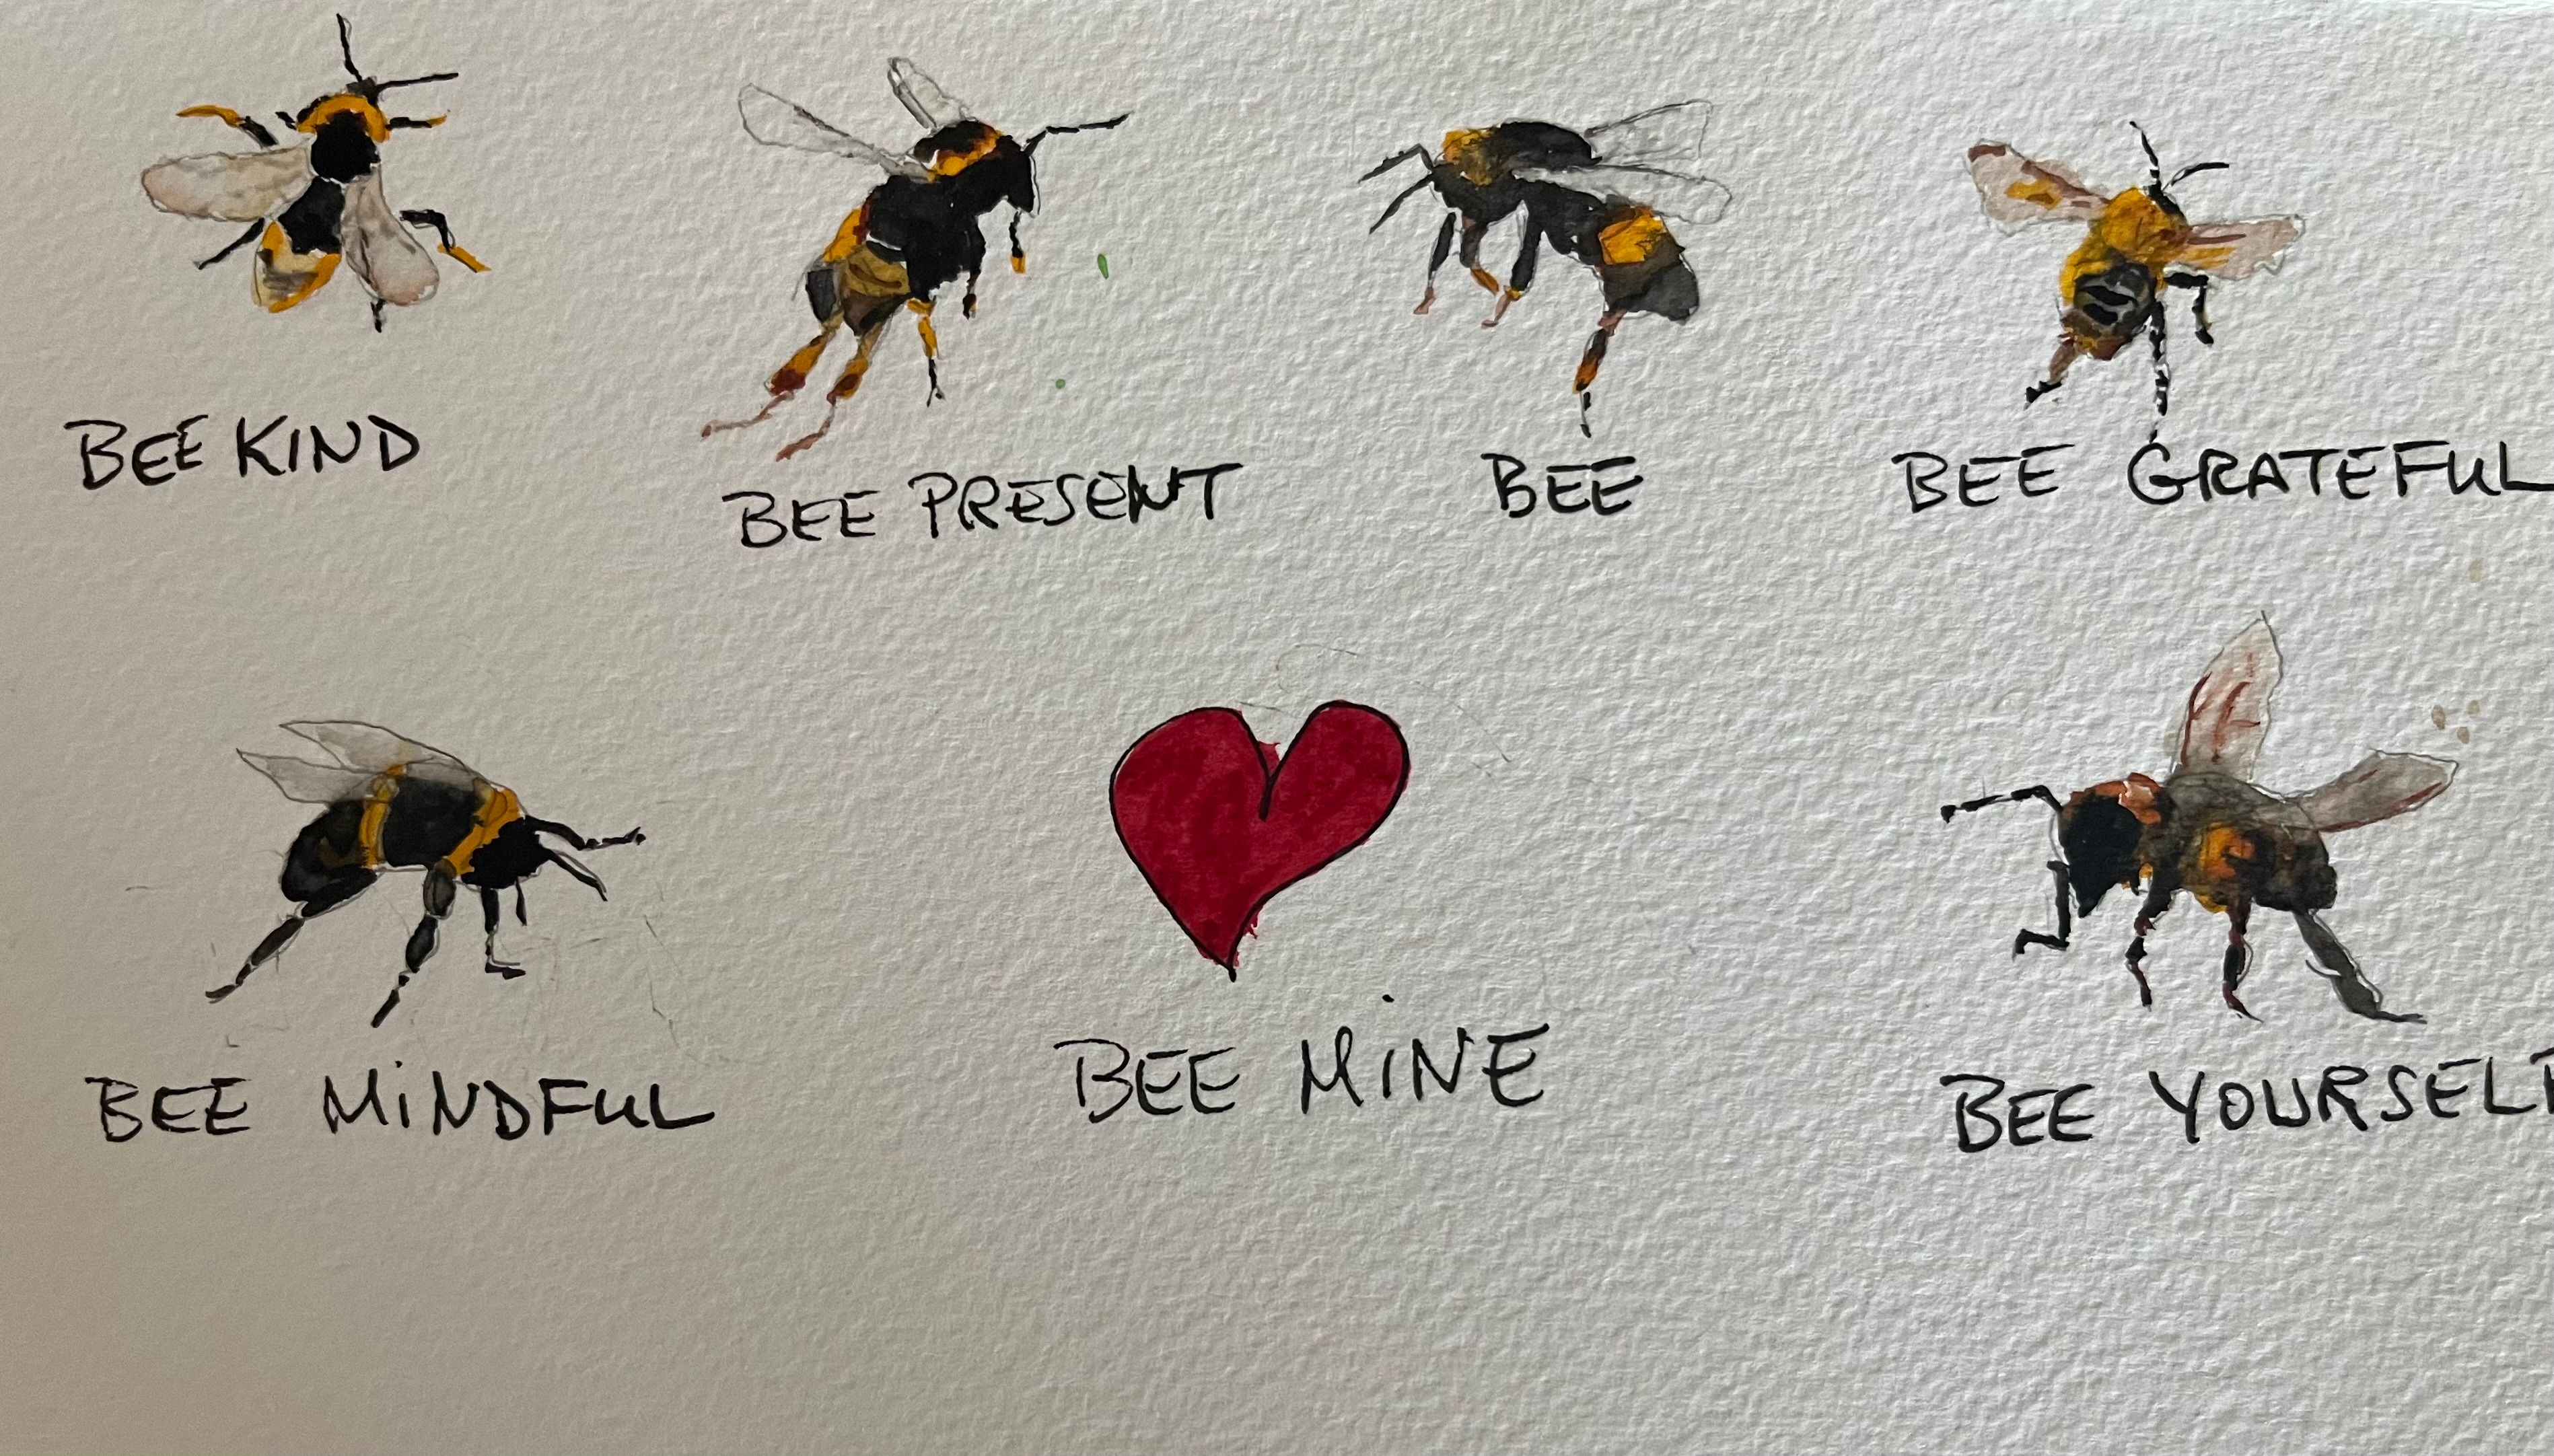 BEE KIND
BEE PRESENT
BEE
BEE GRATEFUL
BEE MiNDFUL
BEE MiNE
BEE YOURSELF